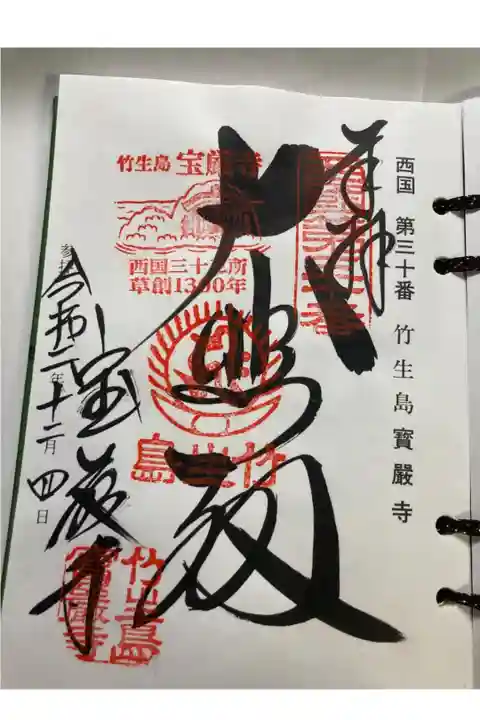 西国 第三十番 竹生島寶嚴寺
奉拝
西国第三十番
大悲殿
竹生島 宝厳寺
西国三十三所
草創1300年
竹生島
宝厳寺
竹生島
寶嚴寺
令和年十二月四日